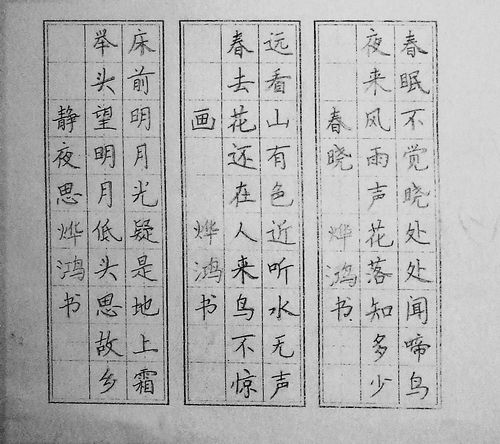 春眠不觉晓处处闻啼鸟
夜来风雨声花落知多少
春晓 烨鸿书
远看山有色近听水无声
春去花还在人来鸟不惊
画 烨鸿书
床前明月光疑是地上霜
举头望明月低头思故乡
静夜思 烨鸿书